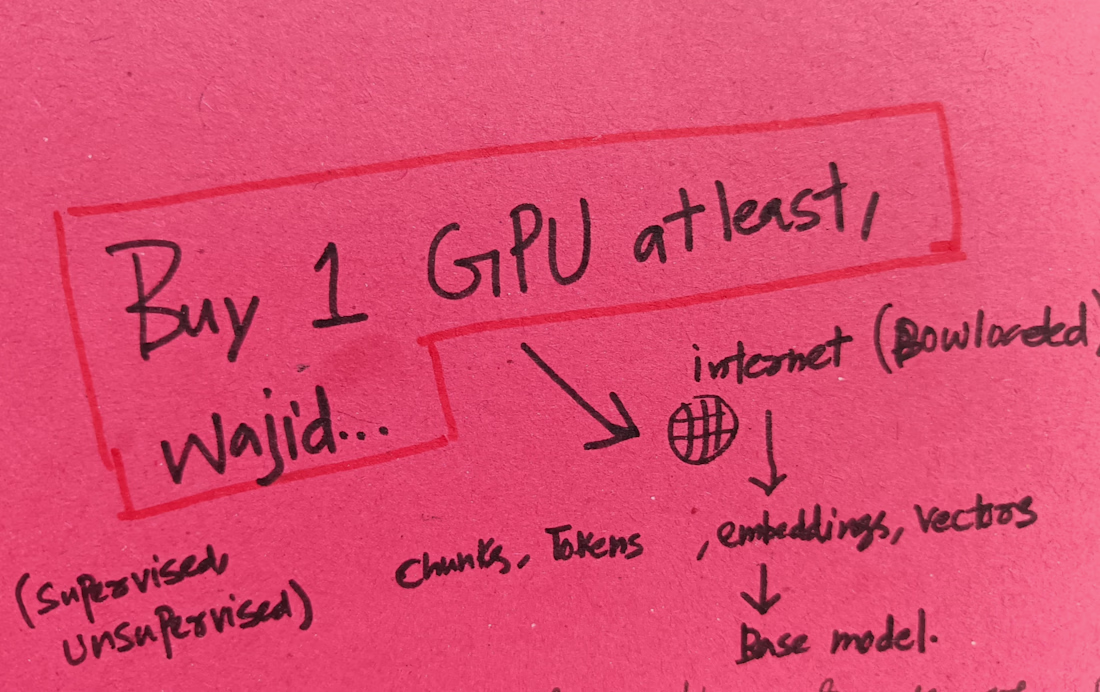 Buy 1 GPU atleast,
Wajid...
internet (Dowloaded)
chunks, Tokens , embeddings, vectors
(supervised
unsupervised)
Base model.